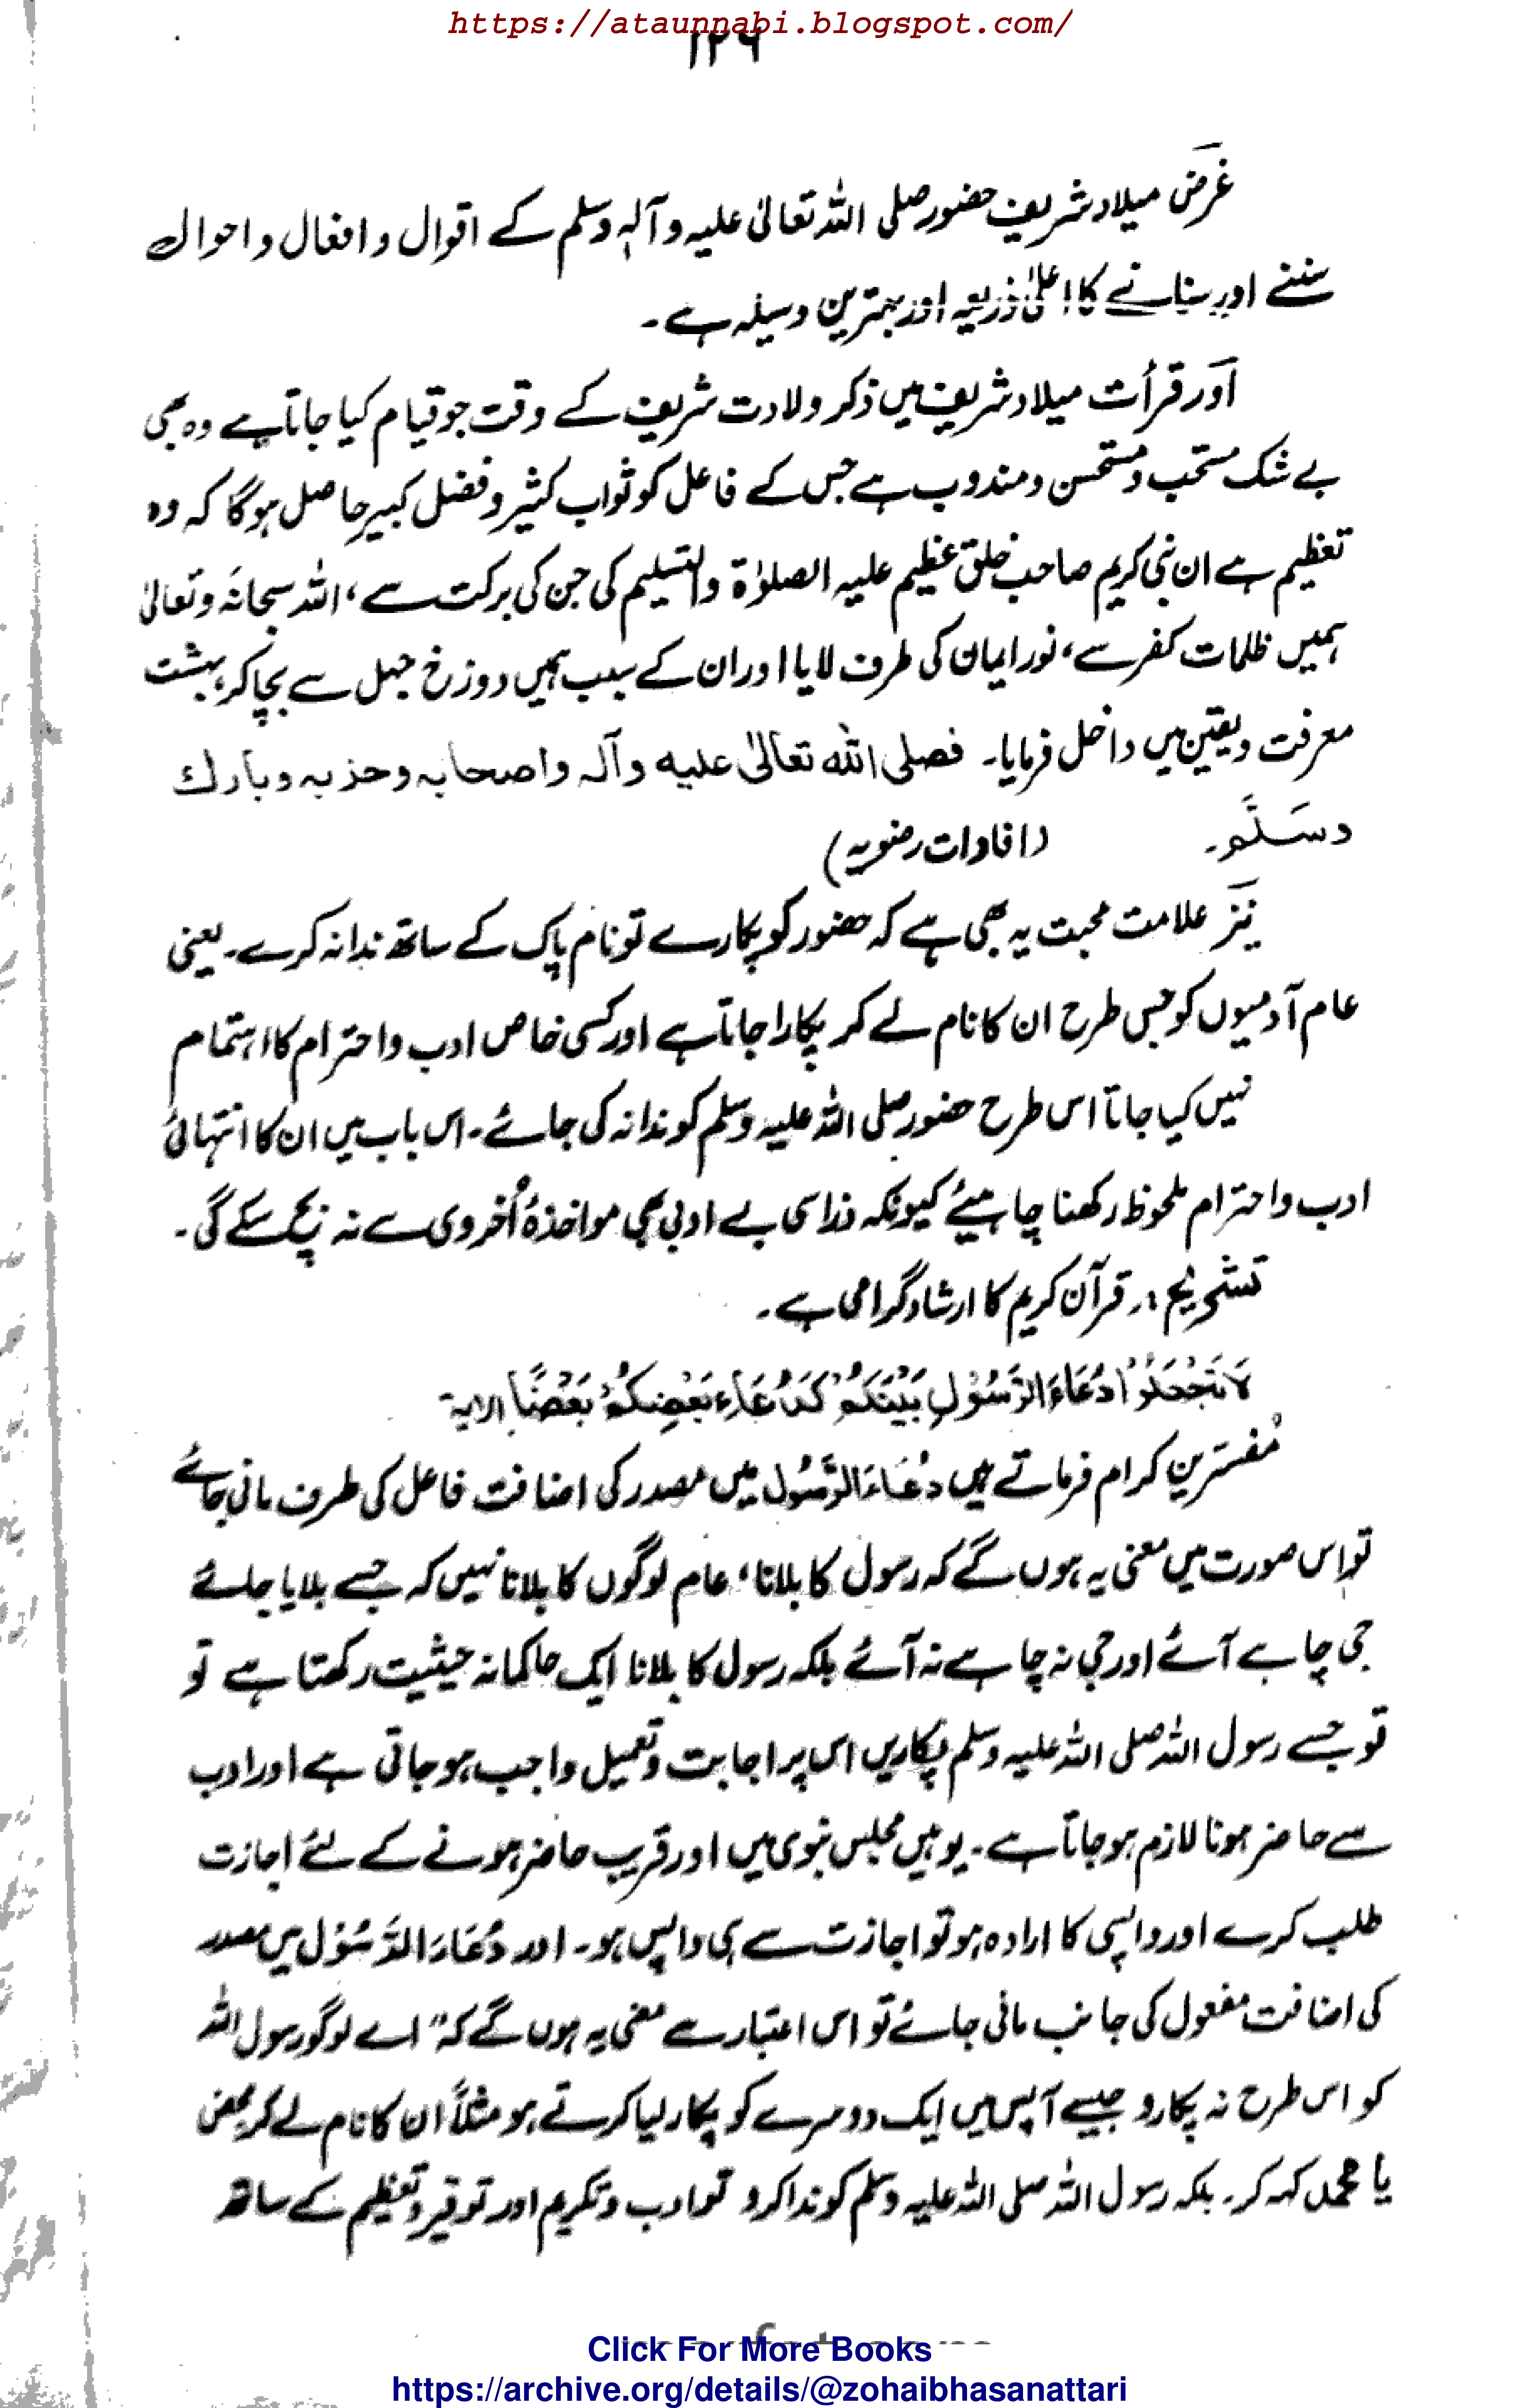 https://ataunnabi.blogspot.com/
۱۲۶
غرض میلاد شریف حضور صلی اللہ تعالیٰ علیہ و آلہٖ وسلم کے اقوال و افعال و احوال
سننے اور سنانے کا اعلیٰ ذریعہ اور بہترین وسیلہ ہے۔
اور قرأت میلاد شریف میں ذکر ولادت شریف کے وقت جو قیام کیا جاتا ہے وہ بھی
بے شک مستحب و مستحسن و مندوب ہے جس کے فاعل کو ثواب کثیر و فضل کبیر حاصل ہوگا کہ وہ
تعظیم ہے ان نبی کریم صاحب خلق عظیم علیہ الصلوٰۃ والتسلیم کی جن کی برکت سے، اللہ سبحانہٗ و تعالیٰ
ہمیں ظلمات کفر سے، نور ایمان کی طرف لایا اور ان کے سبب ہمیں دوزخ جہل سے بچا کر، بہشت
معرفت و یقین میں داخل فرمایا۔ فصلی اللہ تعالیٰ علیہ وآلہ واصحابہ وحزبہ وبارك
وسَلَّم۔ (افادات رضویہ)
نیز علامت محبت یہ بھی ہے کہ حضور کو پکارے تو نام پاک کے ساتھ ندا نہ کرے۔ یعنی
عام آدمیوں کو جس طرح ان کا نام لے کر پکارا جاتا ہے اور کسی خاص ادب و احترام کا اہتمام
نہیں کیا جاتا اس طرح حضور صلی اللہ علیہ وسلم کو ندا نہ کی جائے۔ اس باب میں ان کا انتہائی
ادب و احترام ملحوظ رکھنا چاہیئے کیونکہ ذرا سی بے ادبی بھی مواخذۂ اُخروی سے نہ بچ سکے گی۔
تشریح :۔ قرآن کریم کا ارشاد گرامی ہے۔
لَا تَجْعَلُوْا دُعَاءَ الرَّسُوْلِ بَيْنَكُمْ كَدُعَاءِ بَعْضِكُمْ بَعْضًا الایۃ
مُفسّرین کرام فرماتے ہیں دُعَاءَ الرَّسُوْل میں مصدر کی اضافت فاعل کی طرف مانی جائے
تو اس صورت میں معنی یہ ہوں گے کہ رسول کا بلانا، عام لوگوں کا بلانا نہیں کہ جسے بلایا جائے
جی چاہے آئے اور جی نہ چاہے نہ آئے بلکہ رسول کا بلانا ایک حاکمانہ حیثیت رکھتا ہے تو
تو جسے رسول اللہ صلی اللہ علیہ وسلم پکاریں اس پر اجابت و تعمیل واجب ہو جاتی ہے اور ادب
سے حاضر ہونا لازم ہو جاتا ہے۔ یوہیں مجلس نبوی میں اور قریب حاضر ہونے کے لئے اجازت
طلب کرے اور واپسی کا ارادہ ہو تو اجازت سے ہی واپس ہو۔ اور دُعَاءَ الرَّسُوْل میں مصدر
کی اضافت مفعول کی جانب مانی جائے تو اس اعتبار سے معنی یہ ہوں گے کہ ”اے لوگو رسول اللہ
کو اس طرح نہ پکارو جیسے آپس میں ایک دوسرے کو پکار لیا کرتے ہو مثلاً ان کا نام لے کر محض
یا محمد کہہ کر۔ بلکہ رسول اللہ صلی اللہ علیہ وسلم کو ندا کرو تو ادب و تکریم اور توقیر و تعظیم کے ساتھ
Click For More Books
https://archive.org/details/@zohaibhasanattari